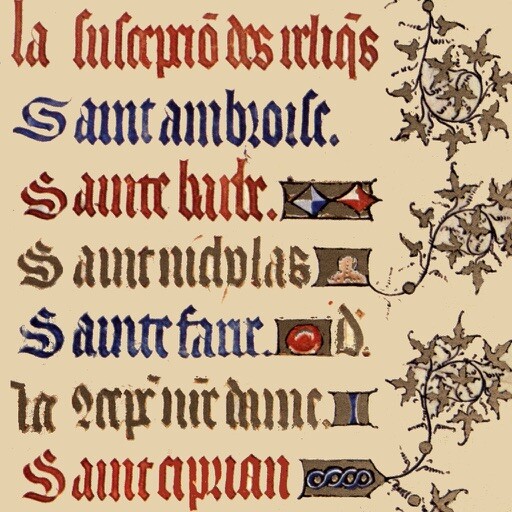 la suscepciõ des reliq̃s
Saint ambroise.
Sainte barbe.
Saint nicholas
Sainte fare. d.
la 9cepc̃ nr̃e dame.
Saint ciprian